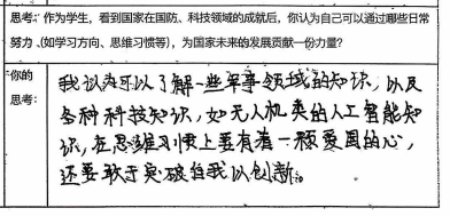 思考: 作为学生，看到国家在国防、科技领域的成就后，你认为自己可以通过哪些日常
努力、(如学习方向、思维习惯等)，为国家未来的发展贡献一份力量?
你的
思考:
我认为可以了解一些军事领域的知识，以及
各种科技知识，如无人机类的人工智能知
识，在思维习惯上要有着一颗爱国的心，
还要敢于突破自我以创新。